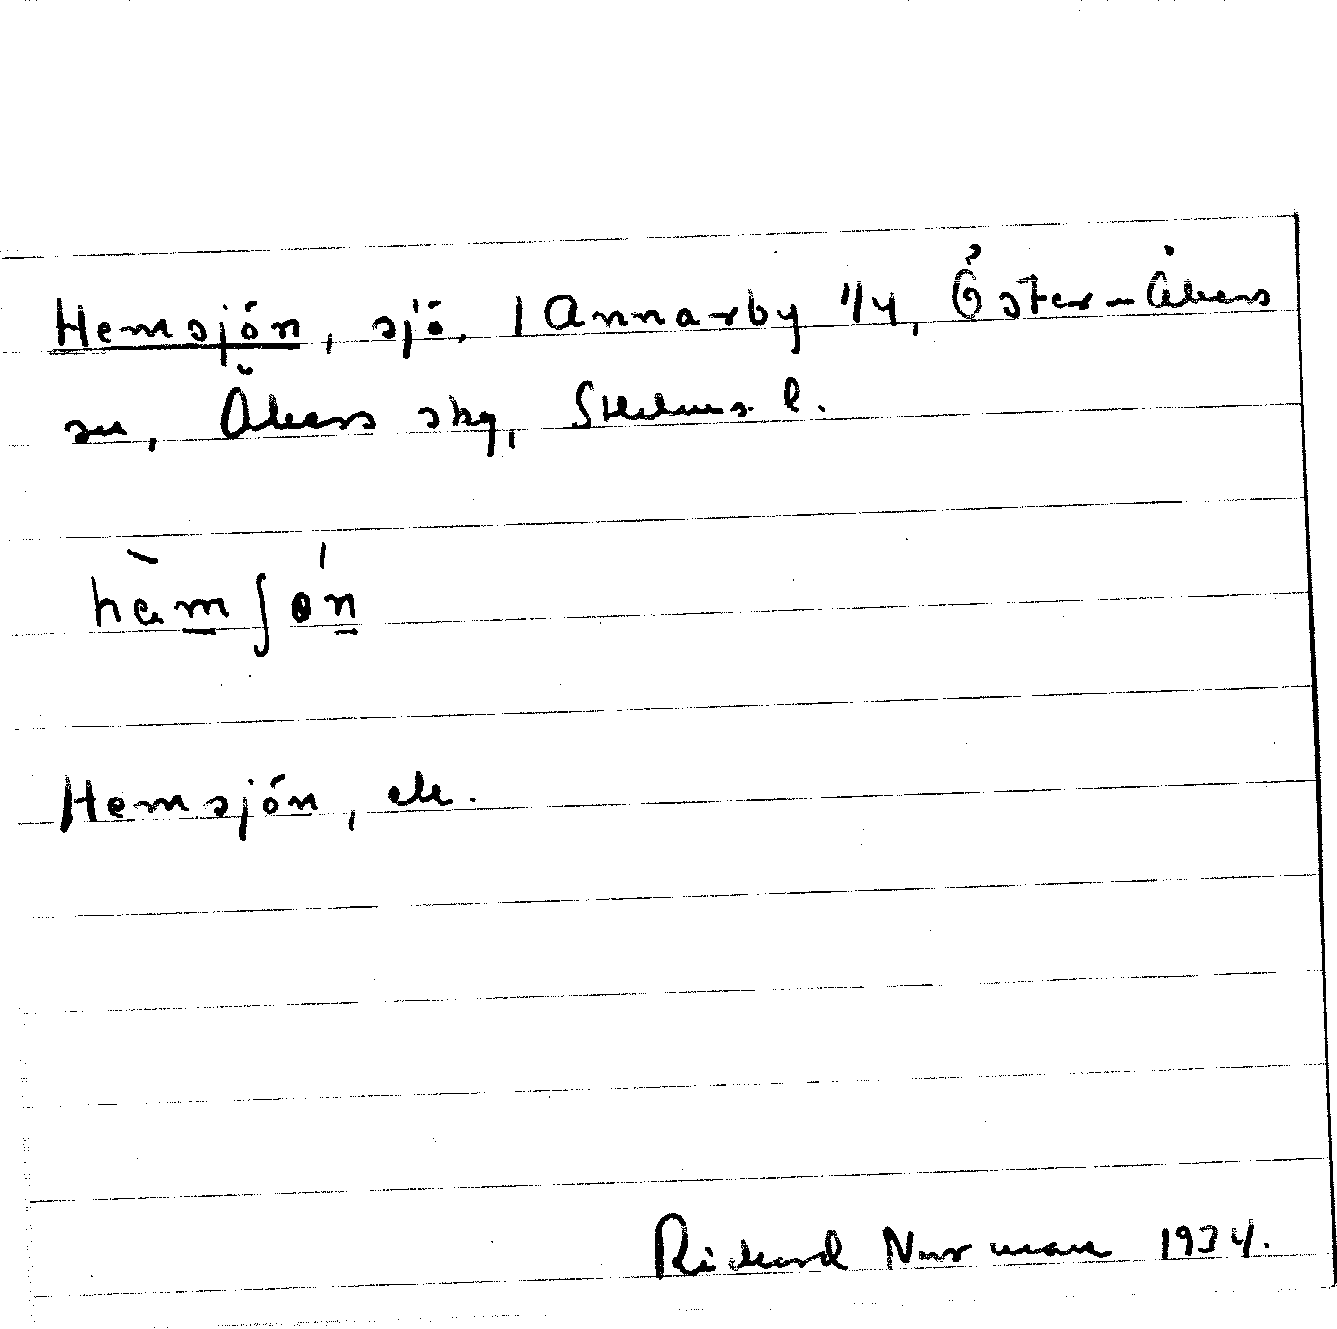 Hemsjön, sjö, 1 Annarby 1/4, Öster-Åkers
sn, Åkers skg, Sthlms l.
hèmʃǿn
Hemsjön, ek.
Rickard Norman 1934.